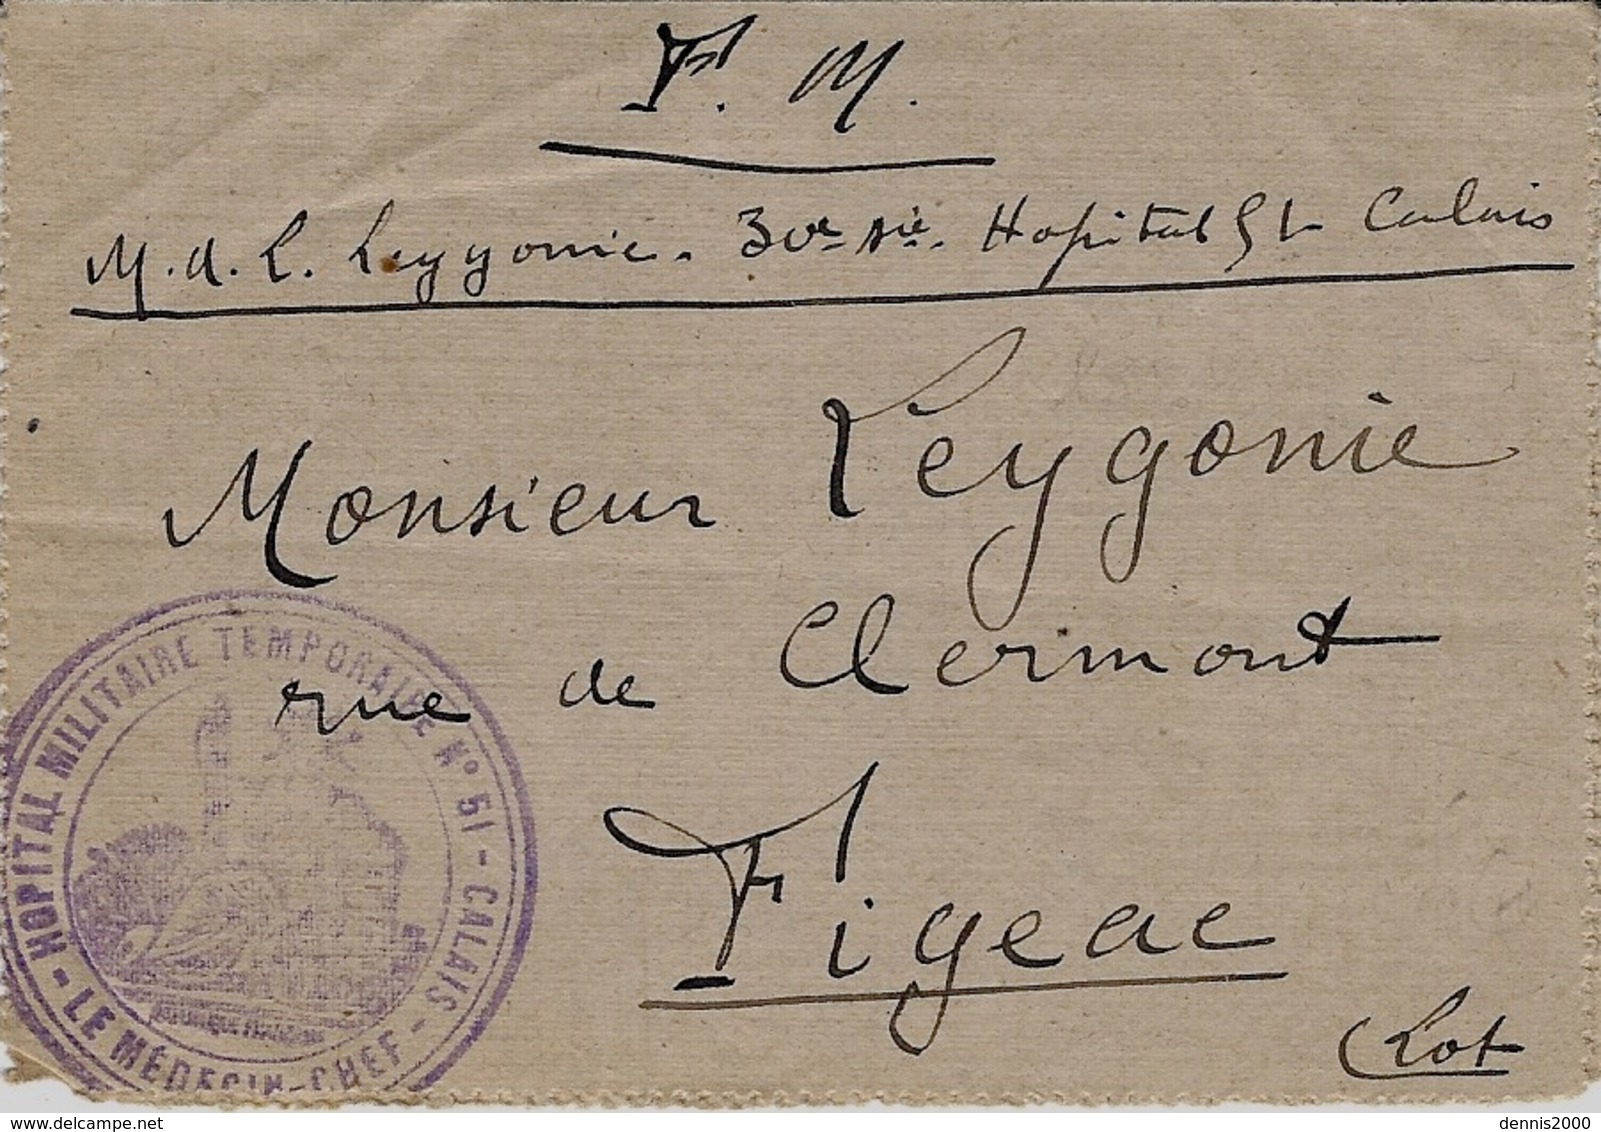 F. M.
M. d. L. Leygonie. 30e Sie. Hopital 51 Calais
Monsieur Leygonie
rue de Clermont
Figeac
(Lot
HOPITAL MILITAIRE TEMPORAIRE N° 51 - CALAIS -
- LE MÉDECIN-CHEF -
delcampe.net
dennis2000